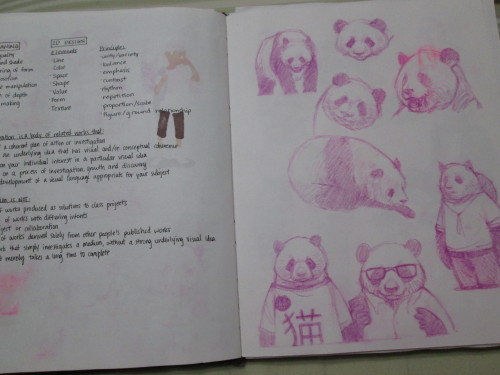 2D DESIGN
Elements
-Line
-Color
-Space
-Shape
-Value
-Form
-Texture
Principles
-unity/variety
-balance
-emphasis
-contrast
-rhythm
-repetition
-proportion/scale
-figure/ground relationship
of form
manipulation
of depth
is a body of related works that:
a coherent plan of action or investigation
an underlying idea that has visual and/or conceptual coherence
your individual interest in a particular visual idea
on a process of investigation, growth and discovery
development of a visual language appropriate for your subject
is NOT:
of works produced as solutions to class projects
of works with differing intents
or collaboration
of works derived solely from other people's published works
that simply investigates a medium, without a strong underlying visual idea
merely takes a long time to complete
猫